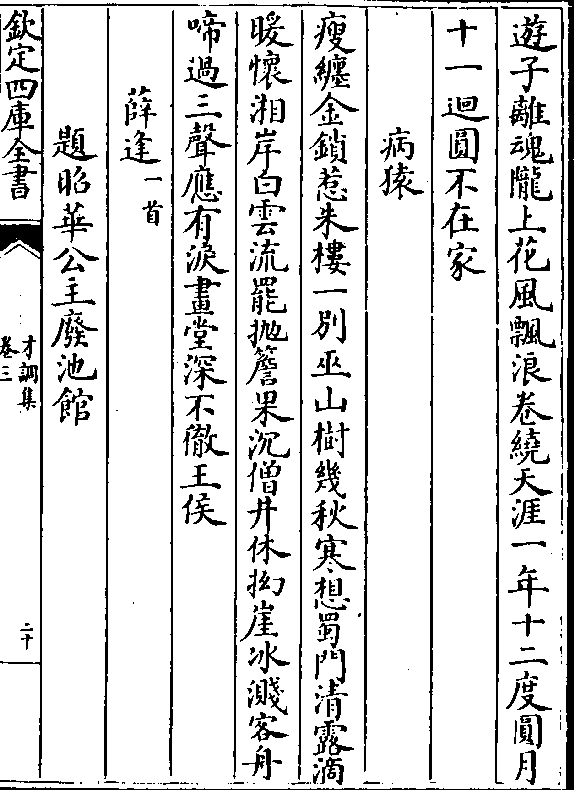 遊子離魂隴上花風飄浪卷繞天涯一年十二度圓月
十一迴圓不在家
病猿
瘦纏金鎖惹朱樓一別巫山樹幾秋寒想蜀門清露滴
暖懷湘岸白雲流罷抛簷果沉僧井休拗崖冰濺客舟
啼過三聲應有淚畫堂深不徹王侯
薛逢一首
題昭華公主廢池館
欽定四庫全書
才調集
卷三
二十